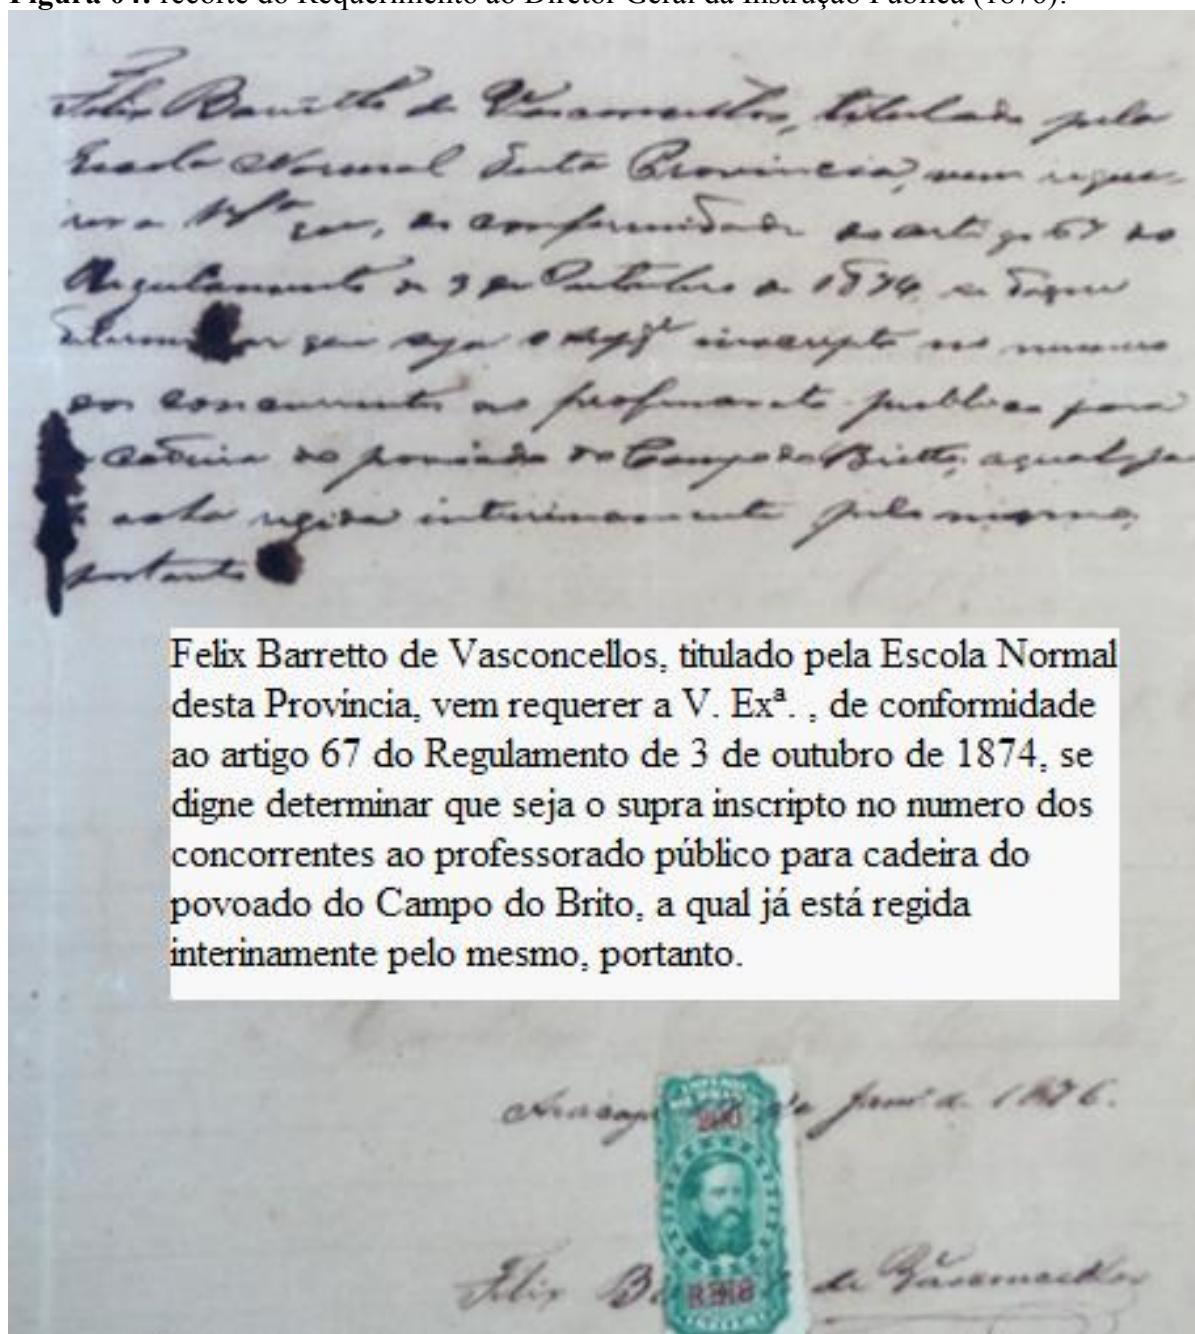 Figura 04: recorte do Requerimento ao Diretor Geral da Instrução Pública (1876).
Felix Barretto de Vasconcellos, titulado pela
Escola Normal desta Provincia, vem reque-
rer a V. Exª que, de conformidade ao artigo 67 do
Regulamento de 3 de Outubro de 1874, se digne
determinar que seja o suppe inscripto no numero
dos concurrentes ao professorado publico para
a cadeira do povoado do Campo do Britto, a qual ja
está regida interinamente pelo mesmo,
portanto
Felix Barretto de Vasconcellos, titulado pela Escola Normal
desta Província, vem requerer a V. Exª. , de conformidade
ao artigo 67 do Regulamento de 3 de outubro de 1874, se
digne determinar que seja o supra inscripto no numero dos
concorrentes ao professorado público para cadeira do
povoado do Campo do Brito, a qual já está regida
interinamente pelo mesmo, portanto.
de 1876.
200
REIS
Felix B de Vasconcellos